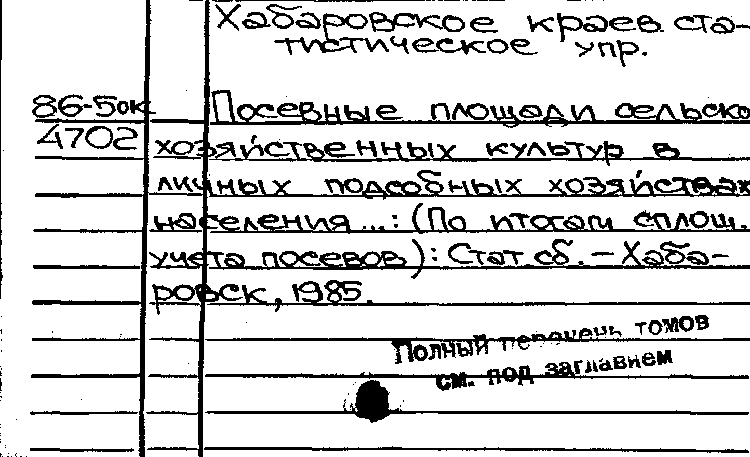 Хабаровское краев. ста-
тистическое упр.
86-5ок Посевные площади сельско-
4702 хозяйственных культур в
личных подсобных хозяйствах
населения...: (По итогам сплош.
учета посевов): Стат. сб. – Хаба-
ровск, 1985.
Полный перечень томов
см. под заглавием